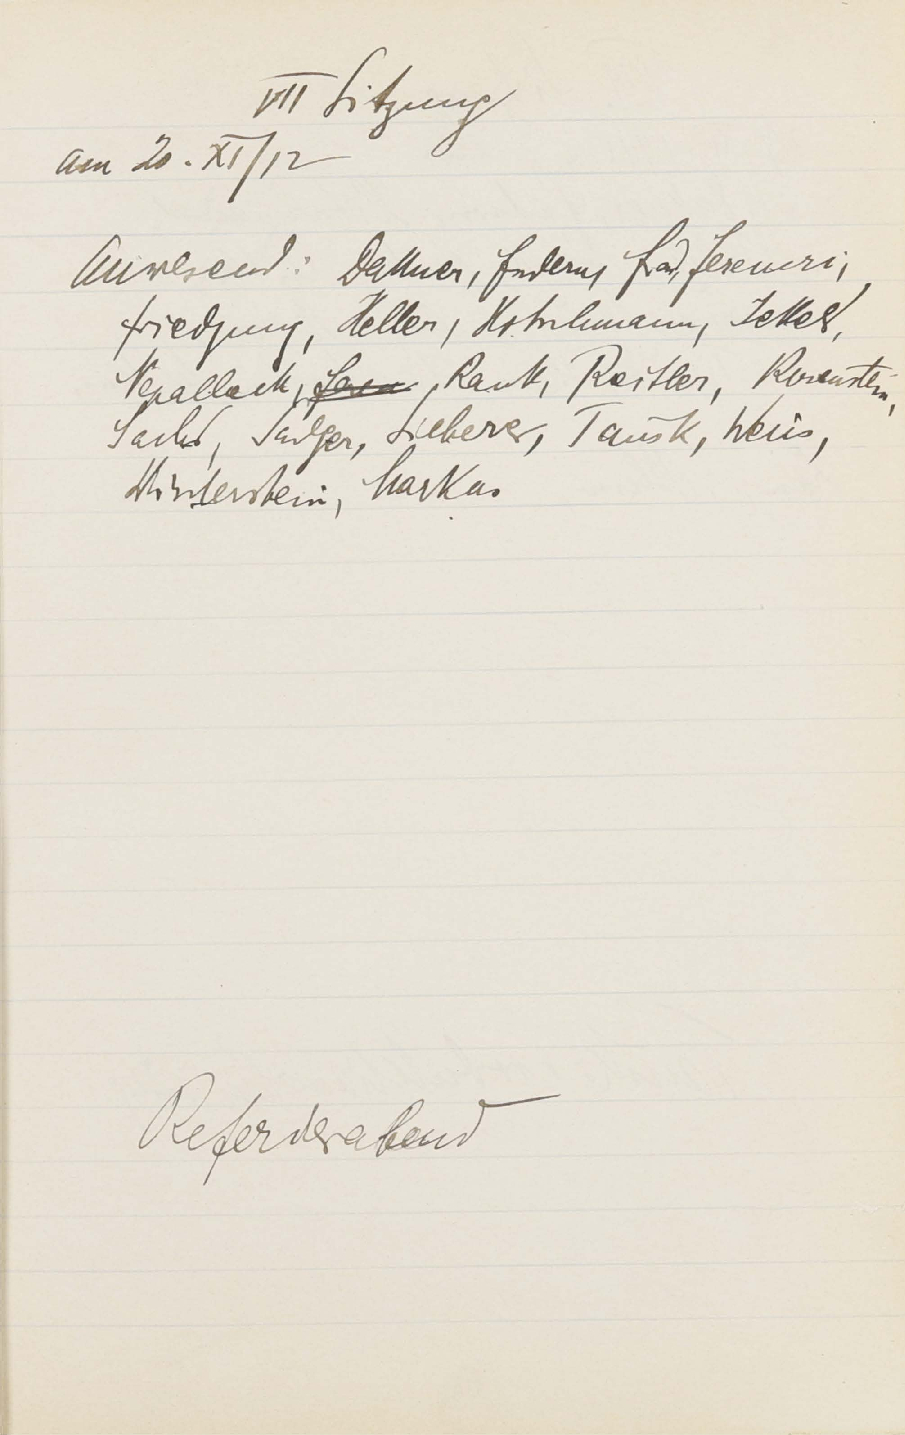 VII Sitzung
am 20. XI/12
Anwesend: Dattner, Federn, Freud, Ferenczi,
Friedjung, Heller, Hitschmann, Jekels,
Nepallek, Rank, Reitler, Rosenstein,
Sachs, Sadger, Silberer, Tausk, Weiss,
Winterstein, Markus
Referierabend